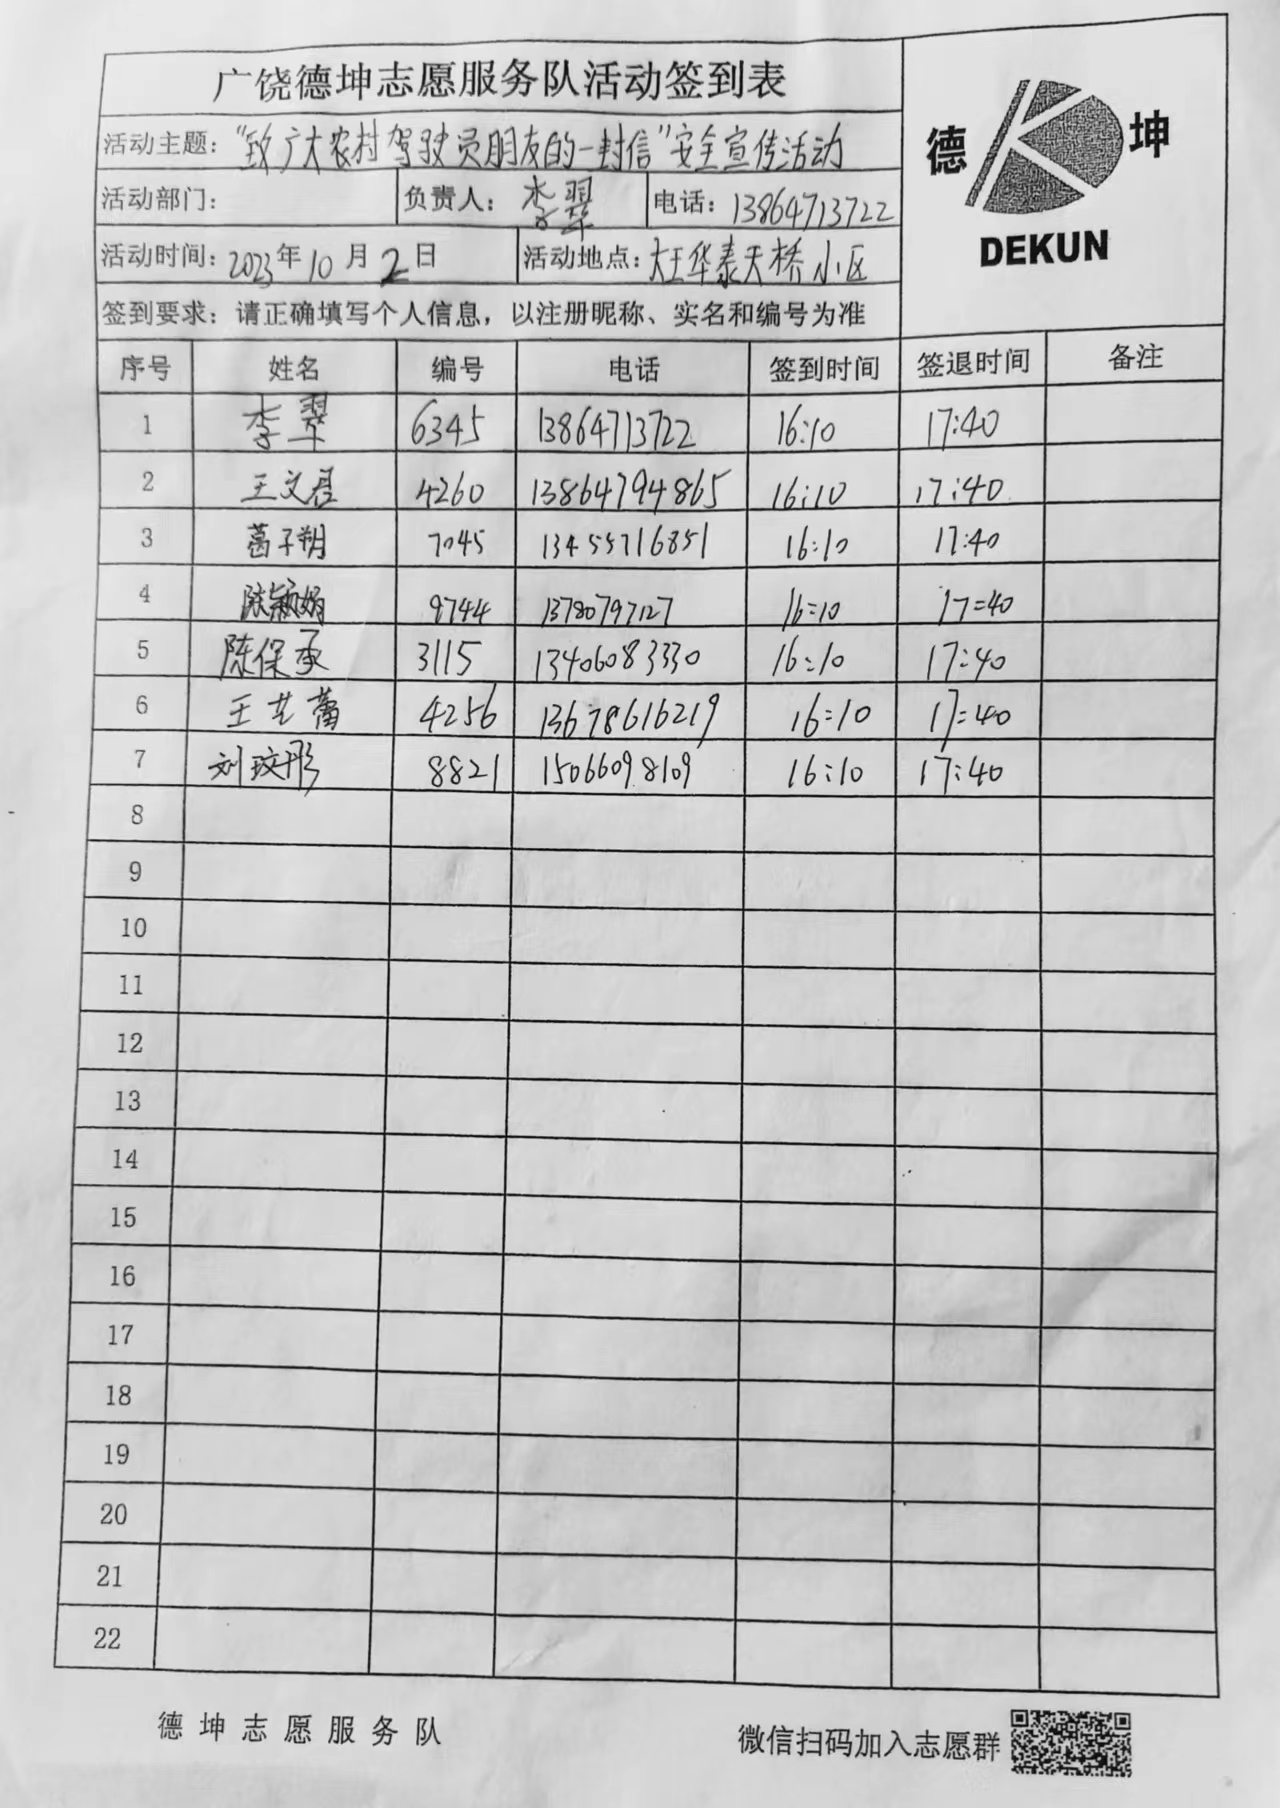 广饶德坤志愿服务队活动签到表
德 坤
DEKUN
活动主题：“致广大农村驾驶员朋友的一封信”安全宣传活动
活动部门： 负责人：李翠 电话：13864713722
活动时间：2023年10月2日 活动地点：大王华泰天桥小区
签到要求：请正确填写个人信息，以注册昵称、实名和编号为准
序号 姓名 编号 电话 签到时间 签退时间 备注
1 李翠 6345 13864713722 16:10 17:40
2 王文君 4260 13864794865 16:10 17:40
3 葛子朔 7045 13455716851 16:10 17:40
4 陈颖娟 9744 13780797127 16:10 17:40
5 陈保承 3115 13406083330 16:10 17:40
6 王艺蕾 4256 13678616219 16:10 17:40
7 刘玟彤 8821 15066098109 16:10 17:40
8
9
10
11
12
13
14
15
16
17
18
19
20
21
22
德坤志愿服务队 微信扫码加入志愿群